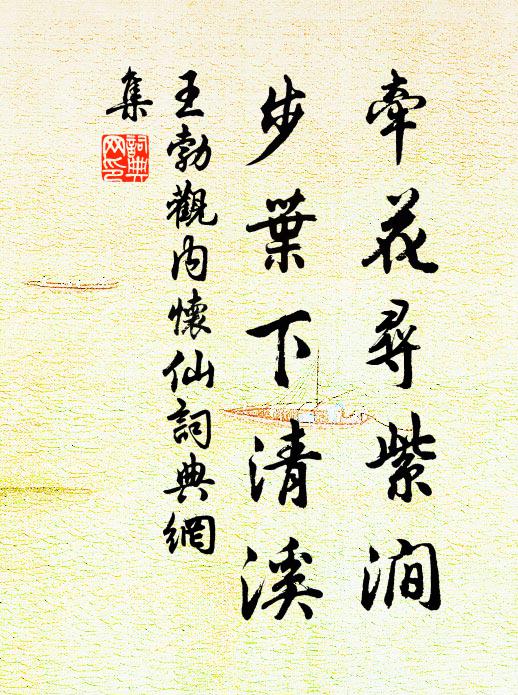 牽花尋紫澗
步葉下清溪
王勃觀內懷仙詞典網
集
詞典網印